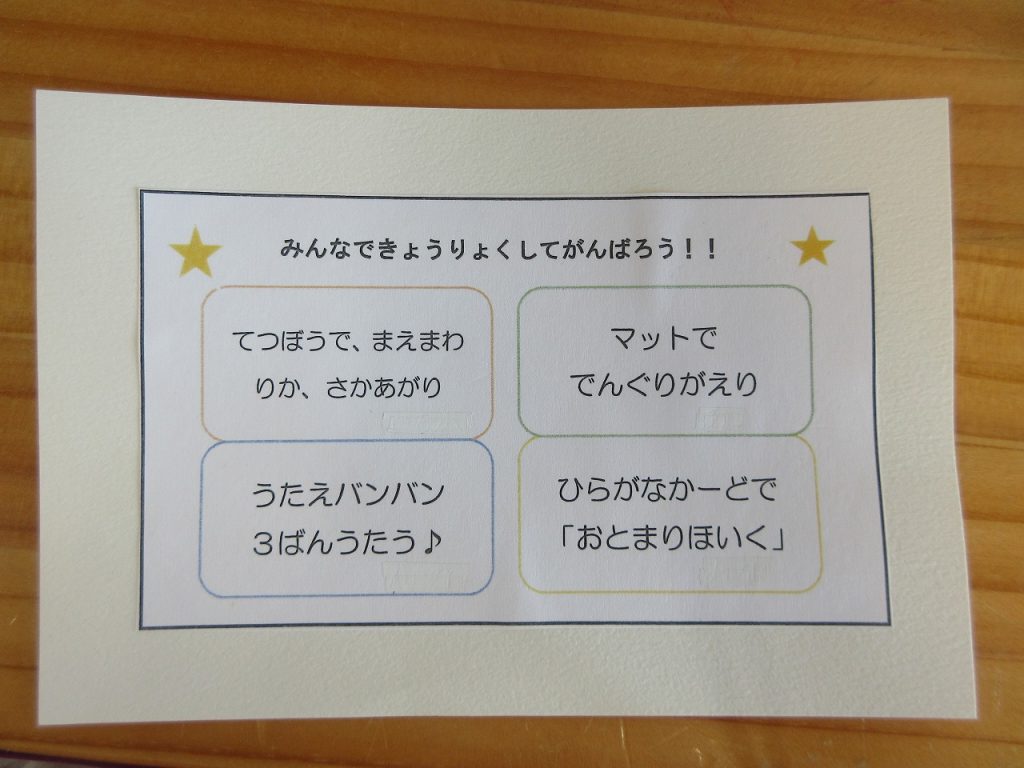 みんなできょうりょくしてがんばろう！！
てつぼうで、まえまわ
りか、さかあがり
マットで
でんぐりがえり
うたえバンバン
３ばんうたう♪
ひらがなかーどで
「おとまりほいく」